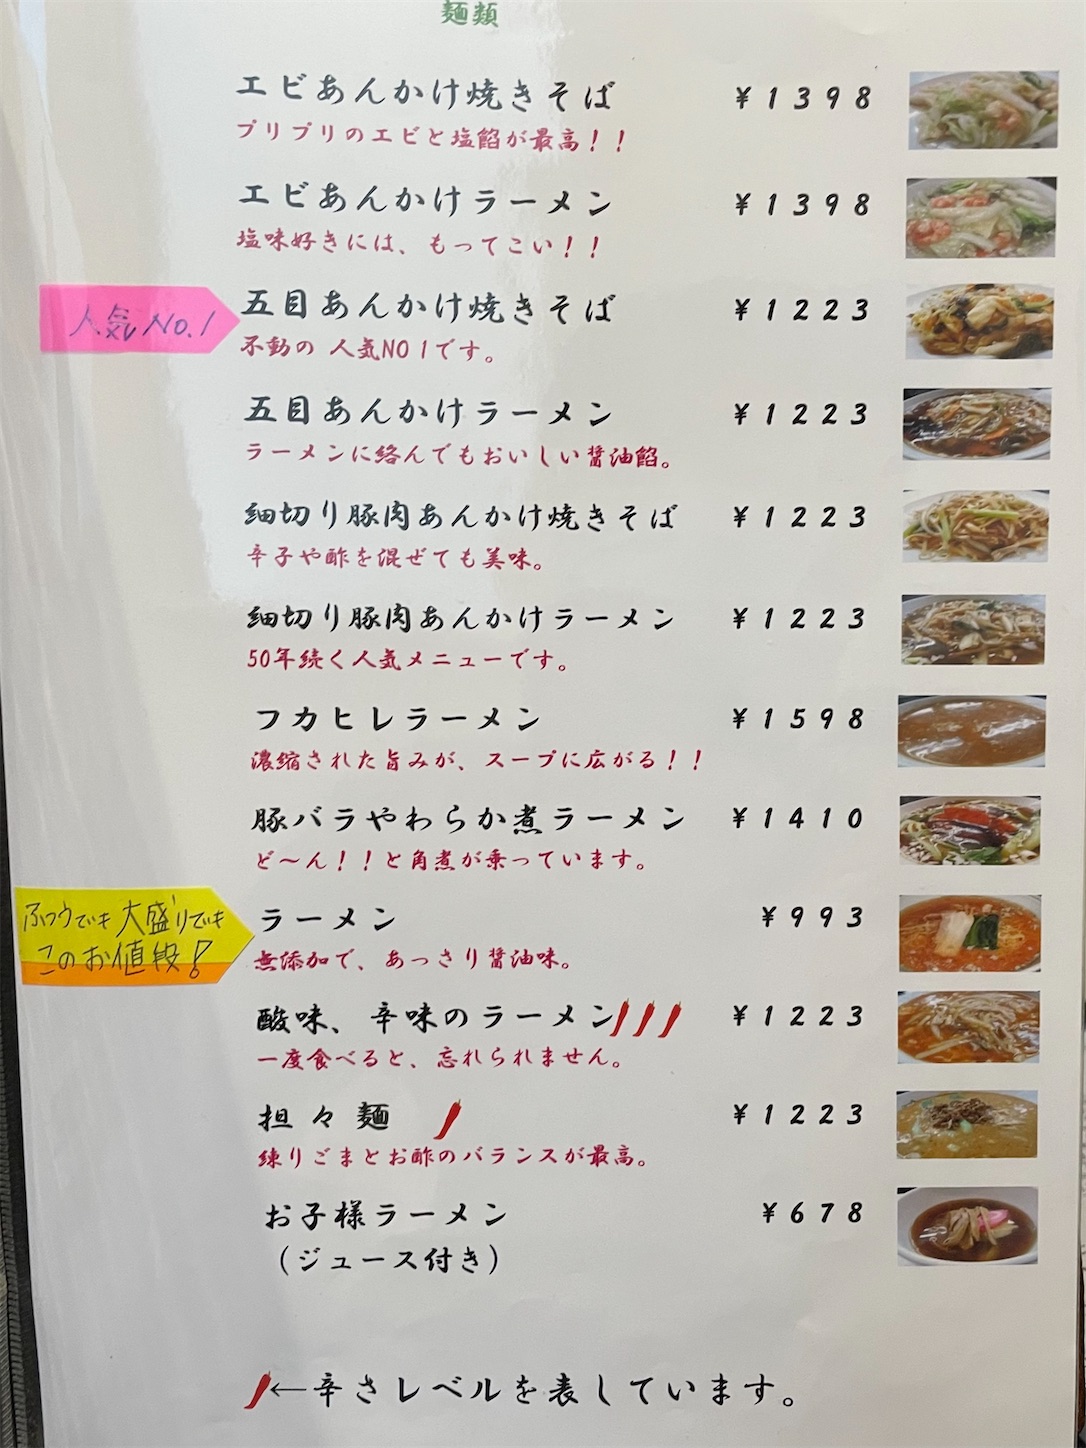 麺類
エビあんかけ焼きそば ￥1398
プリプリのエビと塩餡が最高！！
エビあんかけラーメン ￥1398
塩味好きには、もってこい！！
人気No.1
五目あんかけ焼きそば ￥1223
不動の 人気NO1です。
五目あんかけラーメン ￥1223
ラーメンに絡んでもおいしい醤油餡。
細切り豚肉あんかけ焼きそば ￥1223
辛子や酢を混ぜても美味。
細切り豚肉あんかけラーメン ￥1223
50年続く人気メニューです。
フカヒレラーメン ￥1598
濃縮された旨みが、スープに広がる！！
豚バラやわらか煮ラーメン ￥1410
ど〜ん！！と角煮が乗っています。
ふつうでも大盛りでも
このお値段！
ラーメン ￥993
無添加で、あっさり醤油味。
酸味、辛味のラーメン ￥1223
一度食べると、忘れられません。
担々麺 ￥1223
練りごまとお酢のバランスが最高。
お子様ラーメン ￥678
（ジュース付き）
←辛さレベルを表しています。